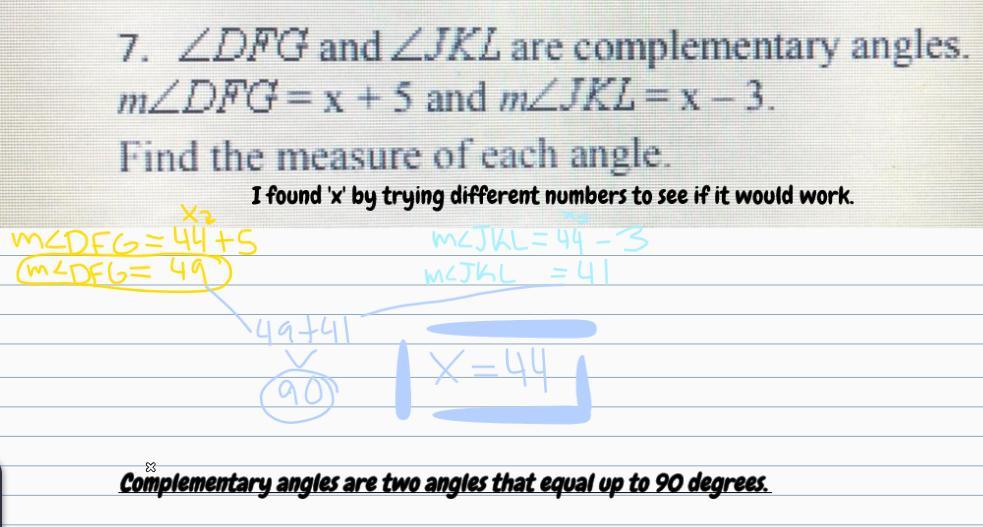 7. ∠DFG and ∠JKL are complementary angles.
m∠DFG = x + 5 and m∠JKL = x – 3.
Find the measure of each angle.
I found 'x' by trying different numbers to see if it would work.
m∠DFG = 44 + 5
m∠JKL = 44 - 3
m∠DFG = 49
m∠JKL = 41
49+41
90
X = 44
Complementary angles are two angles that equal up to 90 degrees.